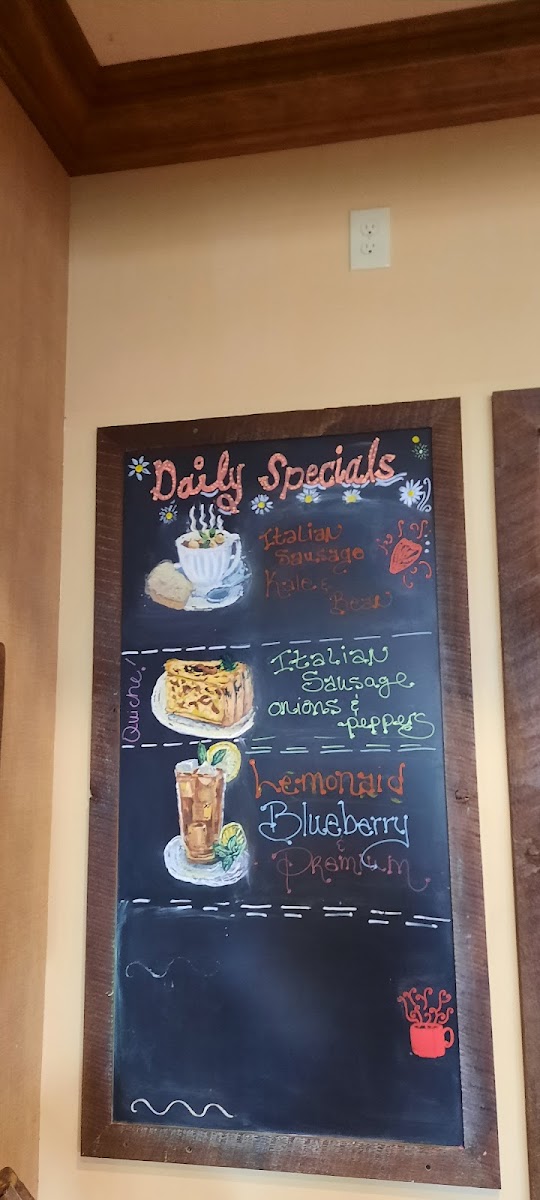 Daily Specials
Italian
Sausage
Kale &
Bean
Quiche!
Italian
Sausage
onions &
peppers
Lemonaid
Blueberry
&
Premium